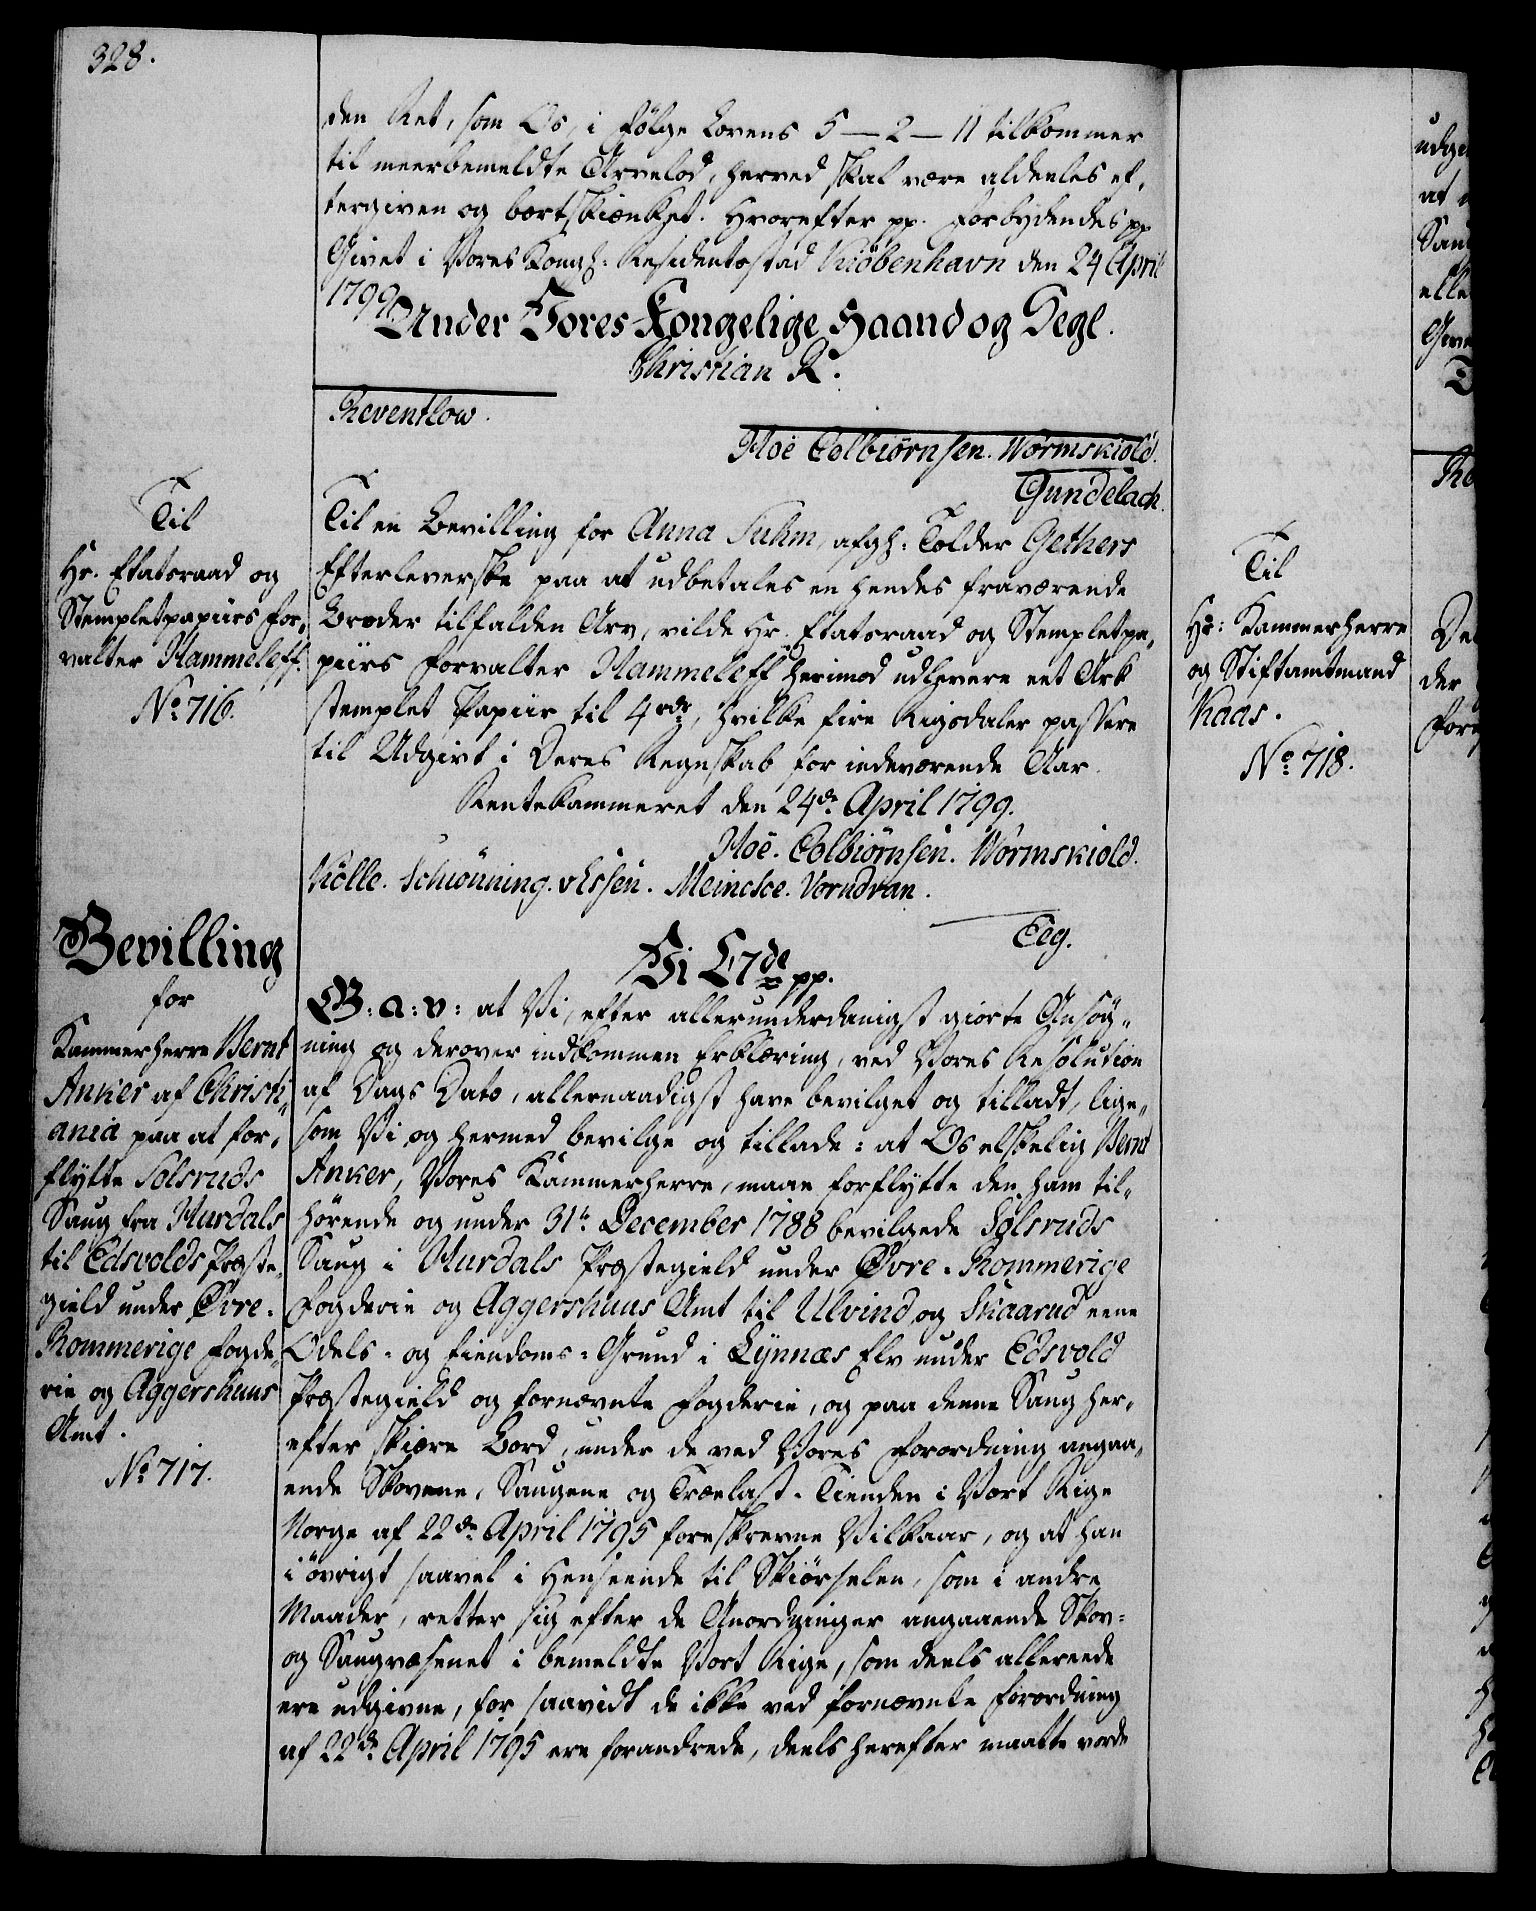 328.
den Ret, som Os, i følge Lovens 5 — 2 — 11 tilkommer
til meerbemeldte Arvelod, herved skal være aldeeles ef-
tergiven og bortskiænket. Hvorefter pp. Forbydendes pp
Givet i Vores Kongl: Residentsstad Kiøbenhavn den 24 April
1799
Under Vores Kongelige Haand og Segl.
Christian R.
Reventlow.
Hoë Colbiørnsen. Wormskiold.
Gundelach.
Til
Hr. Etatsraad og
Stempletpapiirs For-
valter Hammeleff.
No. 716.
Til en Bevilling for Anna Suhm, afgl: Tolder Gethers
Efterleverske paa at udbetales en hendes fraværende
Broder tilfalden Arv, vilde Hr. Etatsraad og Stempletpa-
piirs Forvalter Hammeleff herimod udlevere eet Ark
stemplet Papiir til 4 rdr, hvilke fire Rigsdaler passere
til Udgivt i Deres Regnskab for indeværende Aar.
Rentekammeret den 24de April 1799.
Hoë. Colbiørnsen. Wormskiold.
Kølle. Schwönning. v Essen. Meincke. Vorndran.
Eeg.
Bevilling
for
Kammerherre Bernt
Anker af Christi-
ania paa at for-
flytte Solsruds
Saug fra Hurdals
til Edsvolds Præste-
gield under Øvre-
Rommerige Fogde-
rie og Aggershuus
Amt.
No. 717.
Vi C. 7de pp.
G: a: v: at Vi, efter allerunderdanigst giorte Ansøg-
ning og derover indkommen Erklæring, ved Vores Resolution
af Dags Dato, allernaadigst have bevilget og tilladt, lige-
som Vi og hermed bevilge og tillade: at Os elskelig Bernt
Anker, Vores Kammerherre, maae forflytte den ham til-
hørende og under 31te December 1788 bevilgede Solsruds
Saug i Hurdals Præstegield under Øvre-Rommerige
Fogderie og Aggershuus Amt til Ulvind og Skaarud eene
Odels- og Eiendoms-Grund i Lynnæs Elv under Edsvold
Præstegield og fornævnte Fogderie, og paa denne Saug her-
efter skiære Bord, under de ved Vores Forordning angaa-
ende Skovene, Saugene og Trælast-Tienden i Vort Rige
Norge af 22de April 1795 foreskrevne Vilkaar, og at han
i øvrigt saavel i Henseende til Skiørselen, som i andre
Maader, retter sig efter de Anordninger angaaende Skov-
og Saugvæsenet i bemeldte Vort Rige, som deels allerede
ere udgivne, for saavidt de ikke ved fornævnte Forordning
af 22de April 1795 ere forandrede, deels herefter maatte vorde
Til
Hr: Kammerherre
og Stiftamtmand
Kaas.
No. 718.